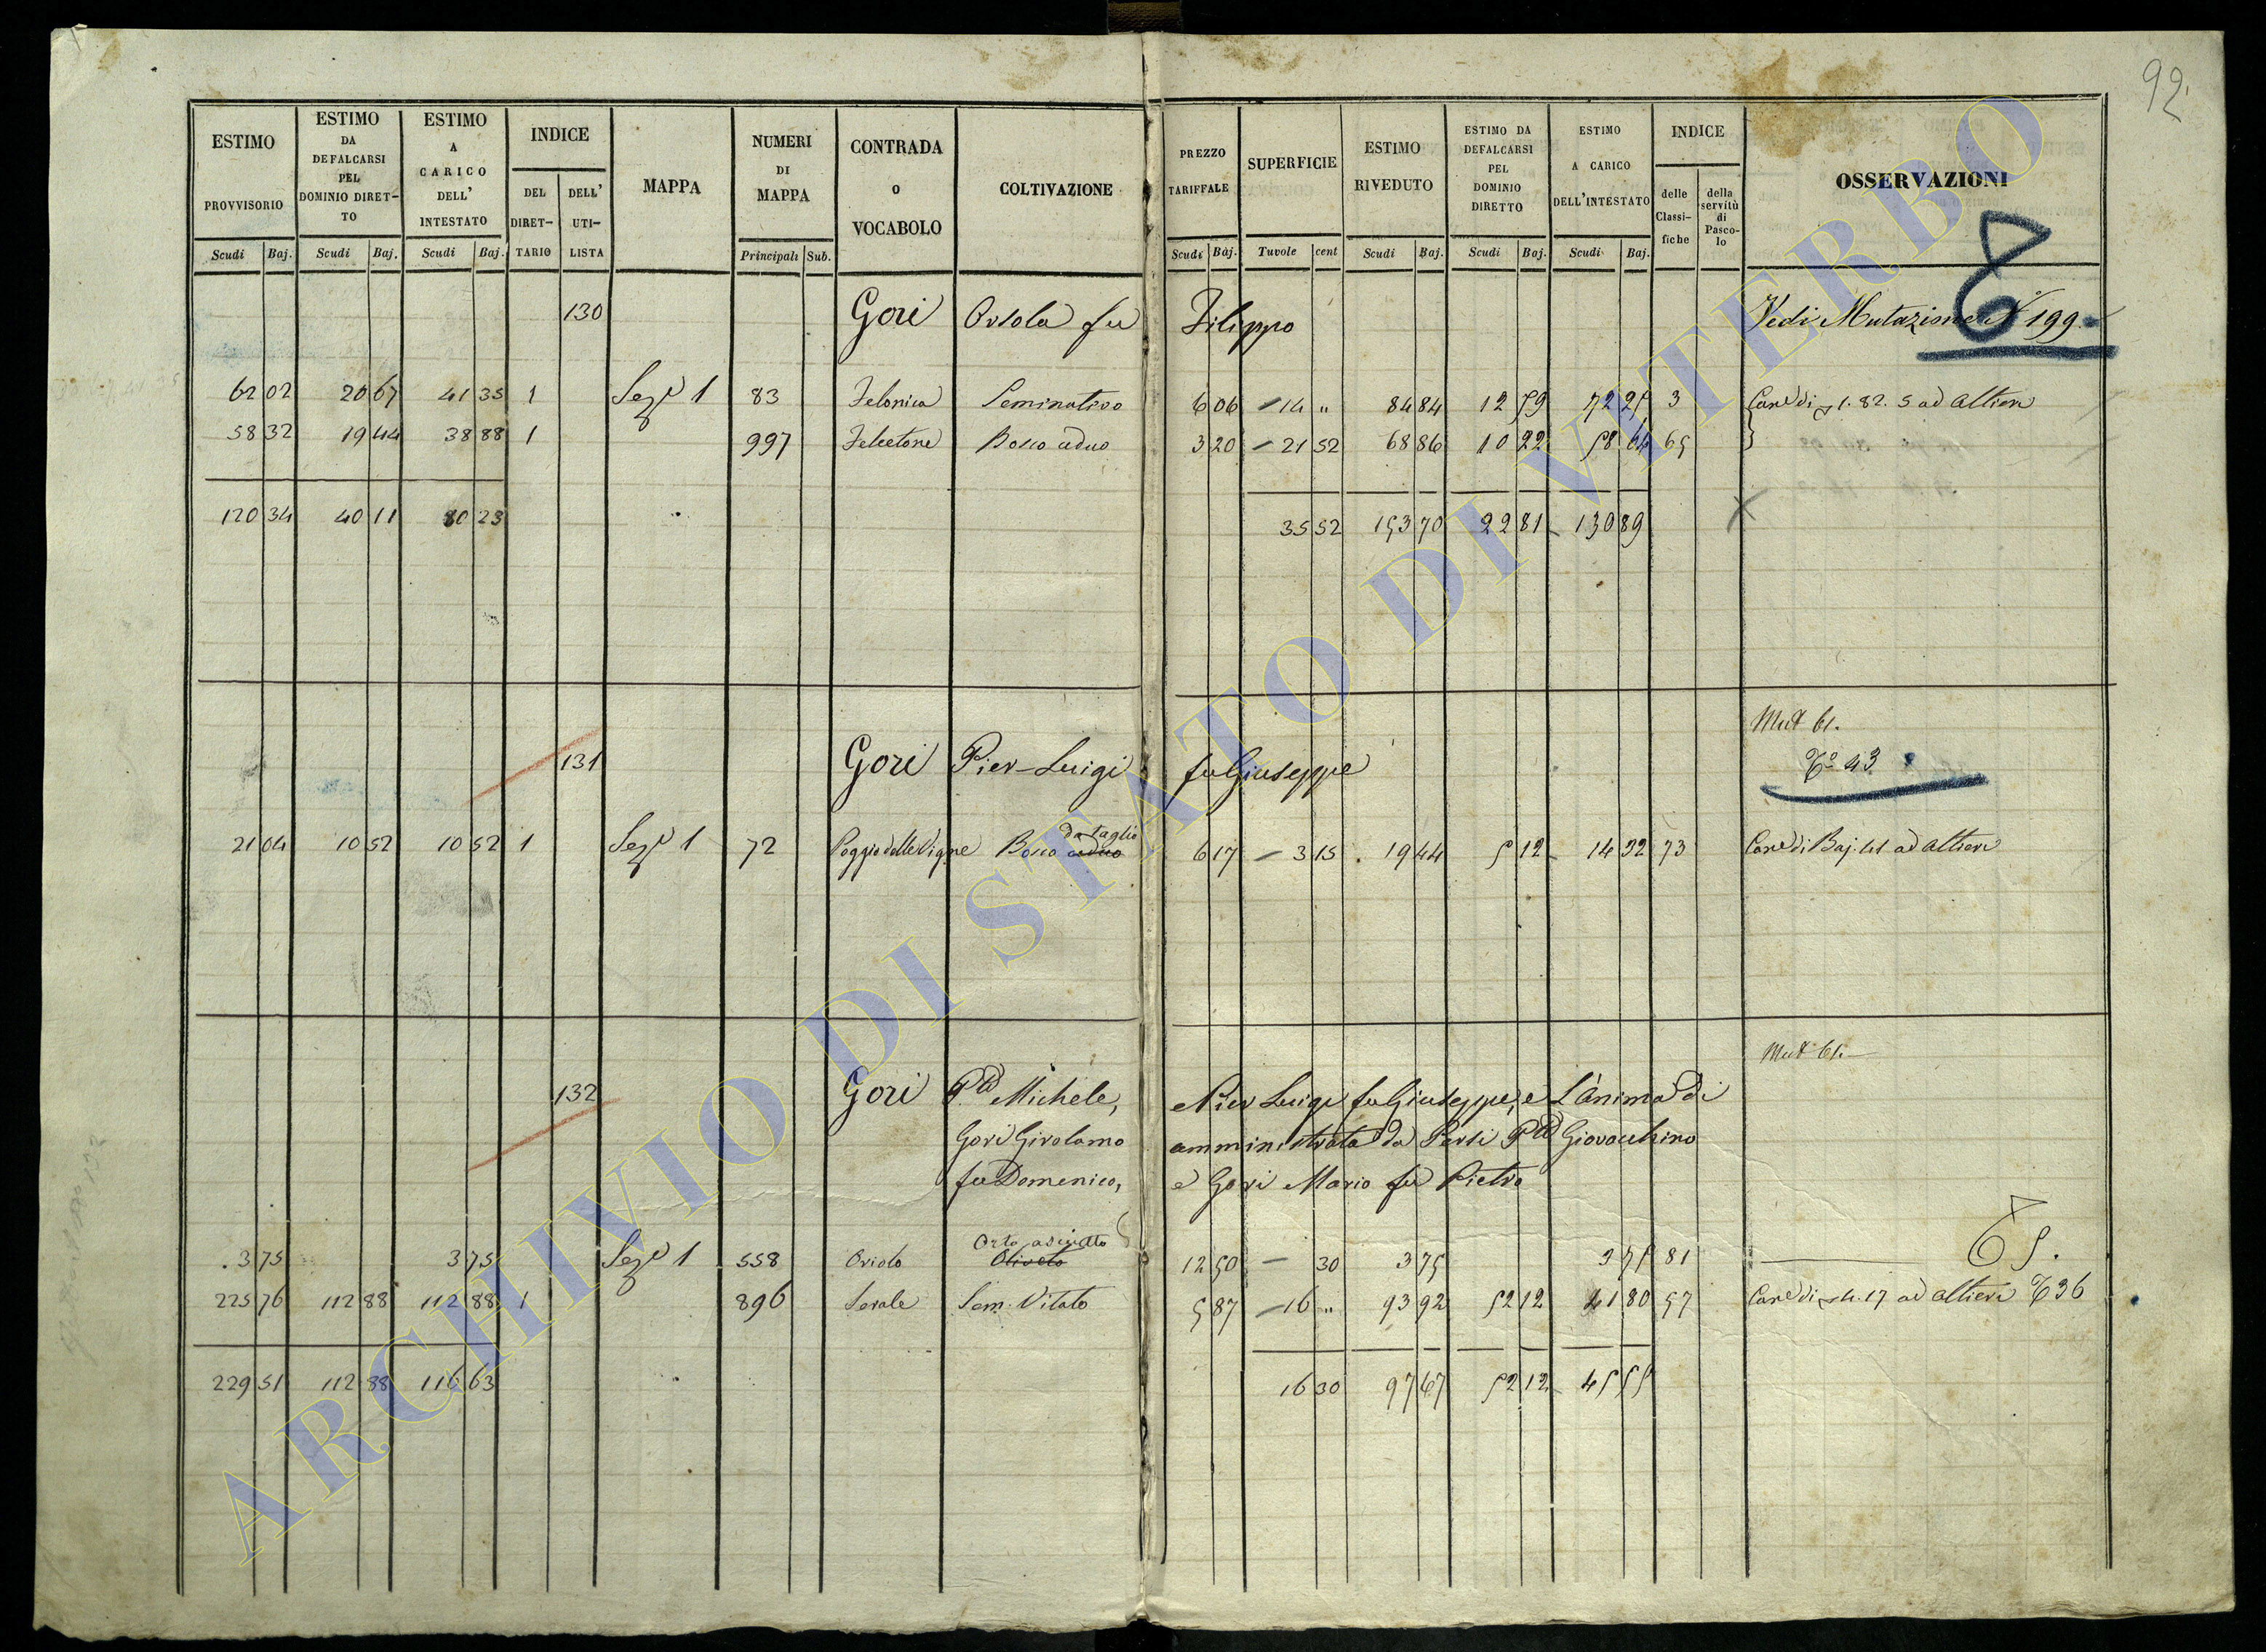 92
ESTIMO PROVVISORIO
ESTIMO DA DEFALCARSI PEL DOMINIO DIRET-TO
ESTIMO A CARICO DELL' INTESTATO
INDICE
DEL DIRET-TARIO
DELL' UTI-LISTA
MAPPA
NUMERI DI MAPPA
CONTRADA o VOCABOLO
COLTIVAZIONE
PREZZO TARIFFALE
SUPERFICIE
ESTIMO RIVEDUTO
ESTIMO DA DEFALCARSI PEL DOMINIO DIRETTO
ESTIMO A CARICO DELL'INTESTATO
INDICE
delle Classi-fiche
della servitù di Pasco-lo
OSSERVAZIONI
Scudi Baj. Scudi Baj. Scudi Baj. Principali Sub. Scudi Baj. Tavole cent Scudi Baj. Scudi Baj. Scudi Baj.
130 Gori Orsola fu Filippo Vedi Mutazione N° 199
62 02 20 67 41 35 1 Sez.e 1 83 Felonica Seminativo 6 06 14 " 84 84 12 59 72 25 3 Can.e di 1. 82. 5 ad Altieri
58 32 19 44 38 88 1 997 Felcetone Bosco ceduo 3 20 21 52 68 86 10 22 58 64 65
120 34 40 11 80 23 35 52 153 70 22 81 130 89
Mut 61.
131 Gori Pier-Luigi fu Giuseppe T° 43
da taglio
21 04 10 52 10 52 1 Sez.e 1 72 Poggio delle Vigne Bosco ceduo 6 17 3 15 19 44 5 12 14 32 73 Can.e di Baj. 41 ad Altieri
Mut 61.
132 Gori P.te Michele, e Pier Luigi fu Giuseppe, e L'anima di
Gori Girolamo amministrata da Persi P.te Giovacchino
fu Domenico, e Gori Mario fu Pietro
Orto asciutto
3 75 3 75 Sez.e 1 558 Oriolo Oliveto 12 50 30 3 75 3 75 81 65.
225 76 112 88 112 88 1 896 Serale Sem. Vitato 5 87 16 " 93 92 52 12 41 80 57 Can.e di 4. 17 ad Altieri T 36
229 51 112 88 116 63 16 30 97 67 52 12 45 55
ARCHIVIO DI STATO DI VITERBO